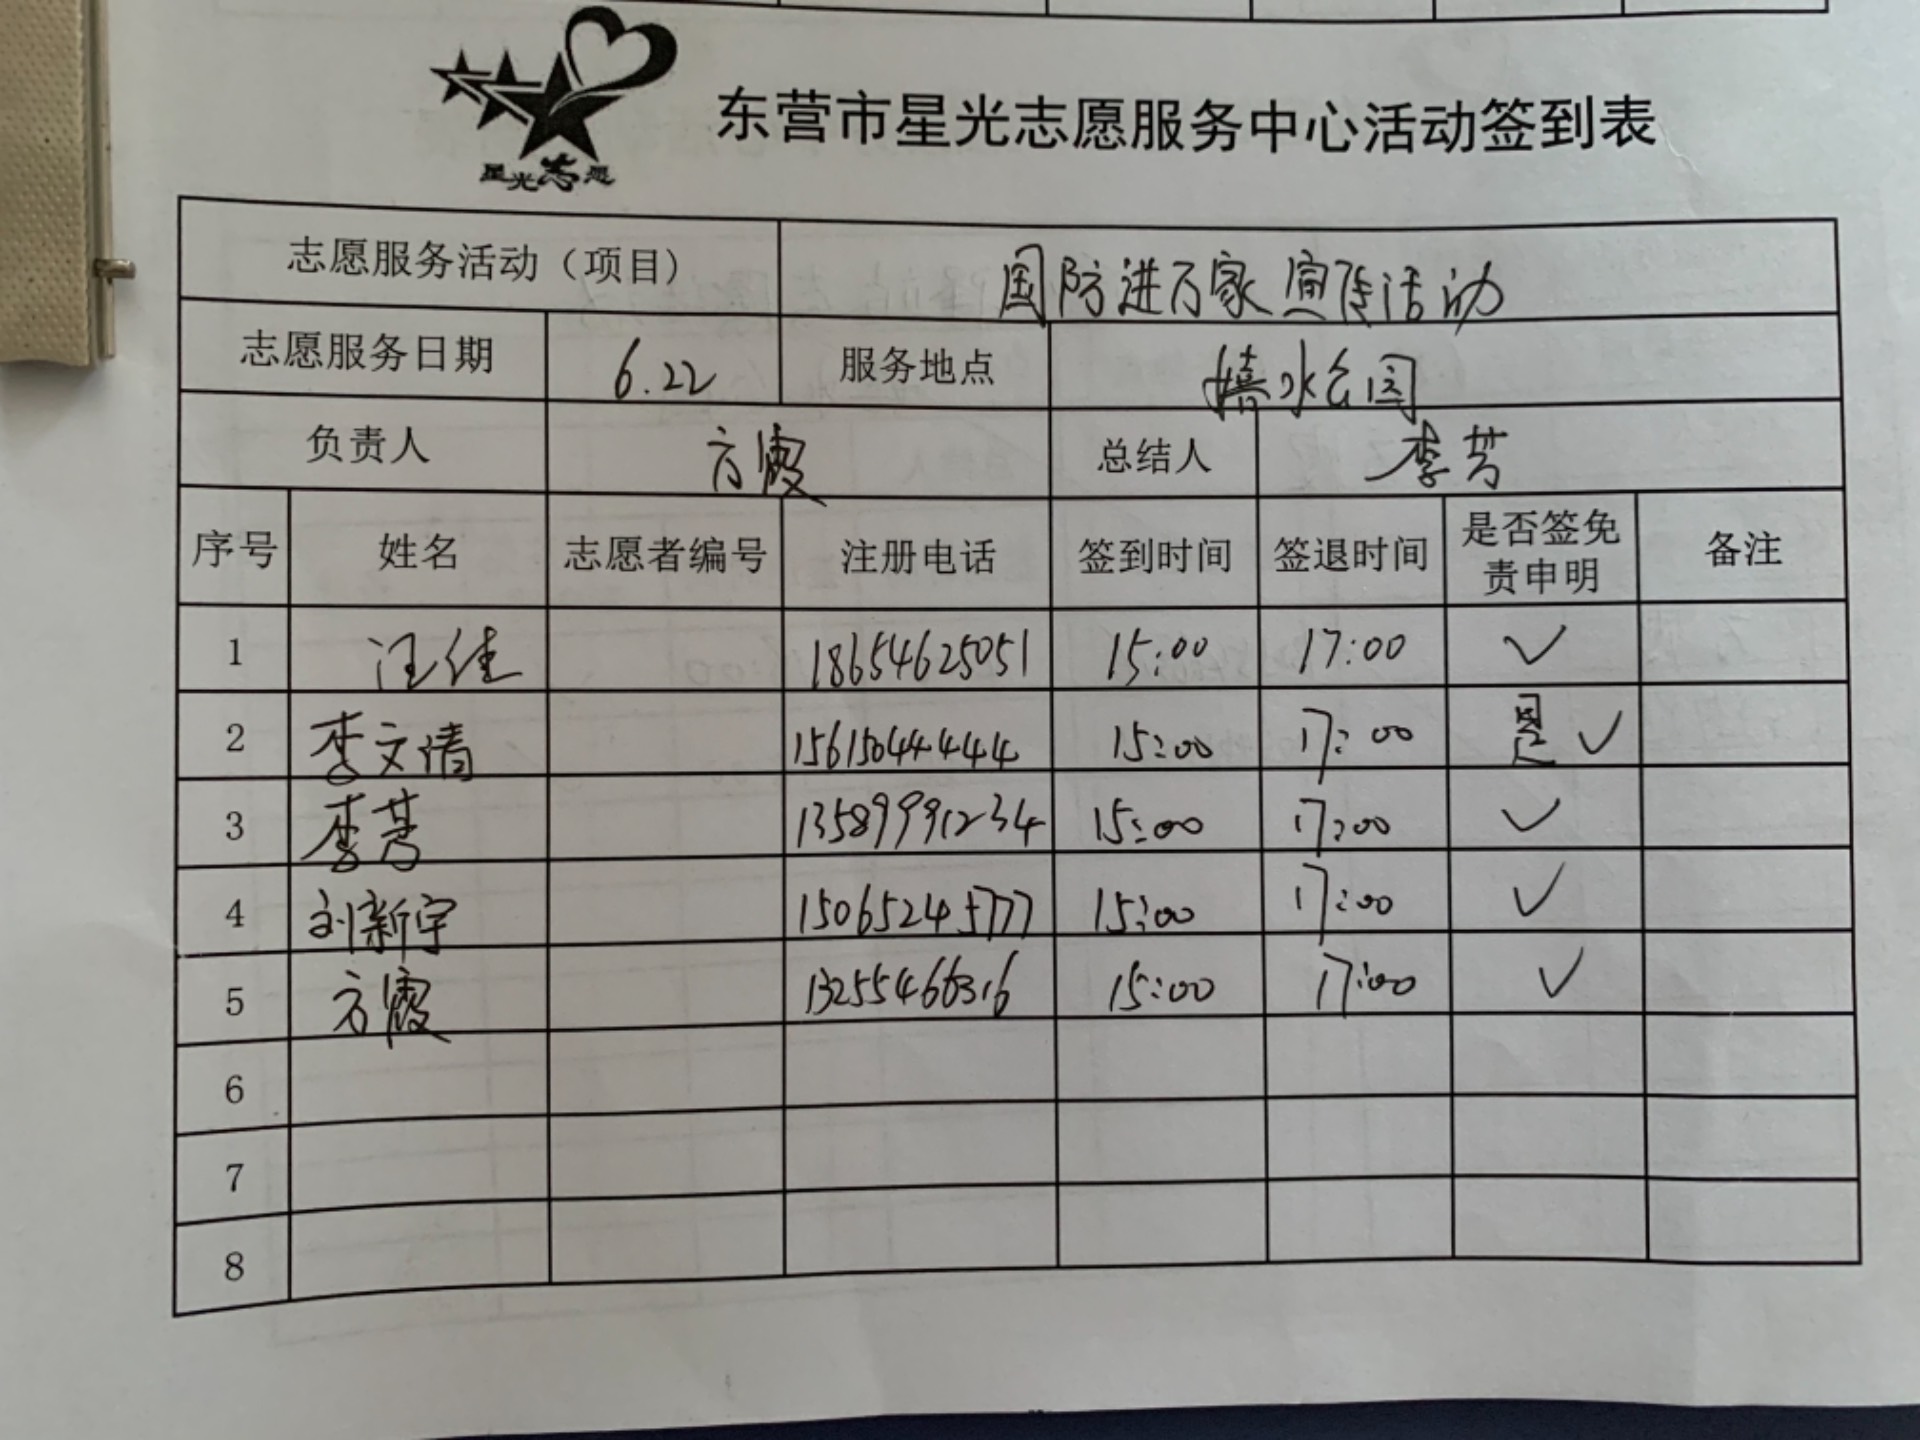 星光志愿
东营市星光志愿服务中心活动签到表
志愿服务活动（项目） 国防进万家宣传活动
志愿服务日期 6.22 服务地点 嬉水公园
负责人 方霞 总结人 李芳
序号 姓名 志愿者编号 注册电话 签到时间 签退时间 是否签免责申明 备注
1 汪佳 18654625051 15:00 17:00 ✓
2 李文清 15615044444 15:00 17:00 是 ✓
3 李芳 13589991234 15:00 17:00 ✓
4 刘新宇 15065245777 15:00 17:00 ✓
5 方霞 13255466316 15:00 17:00 ✓
6
7
8